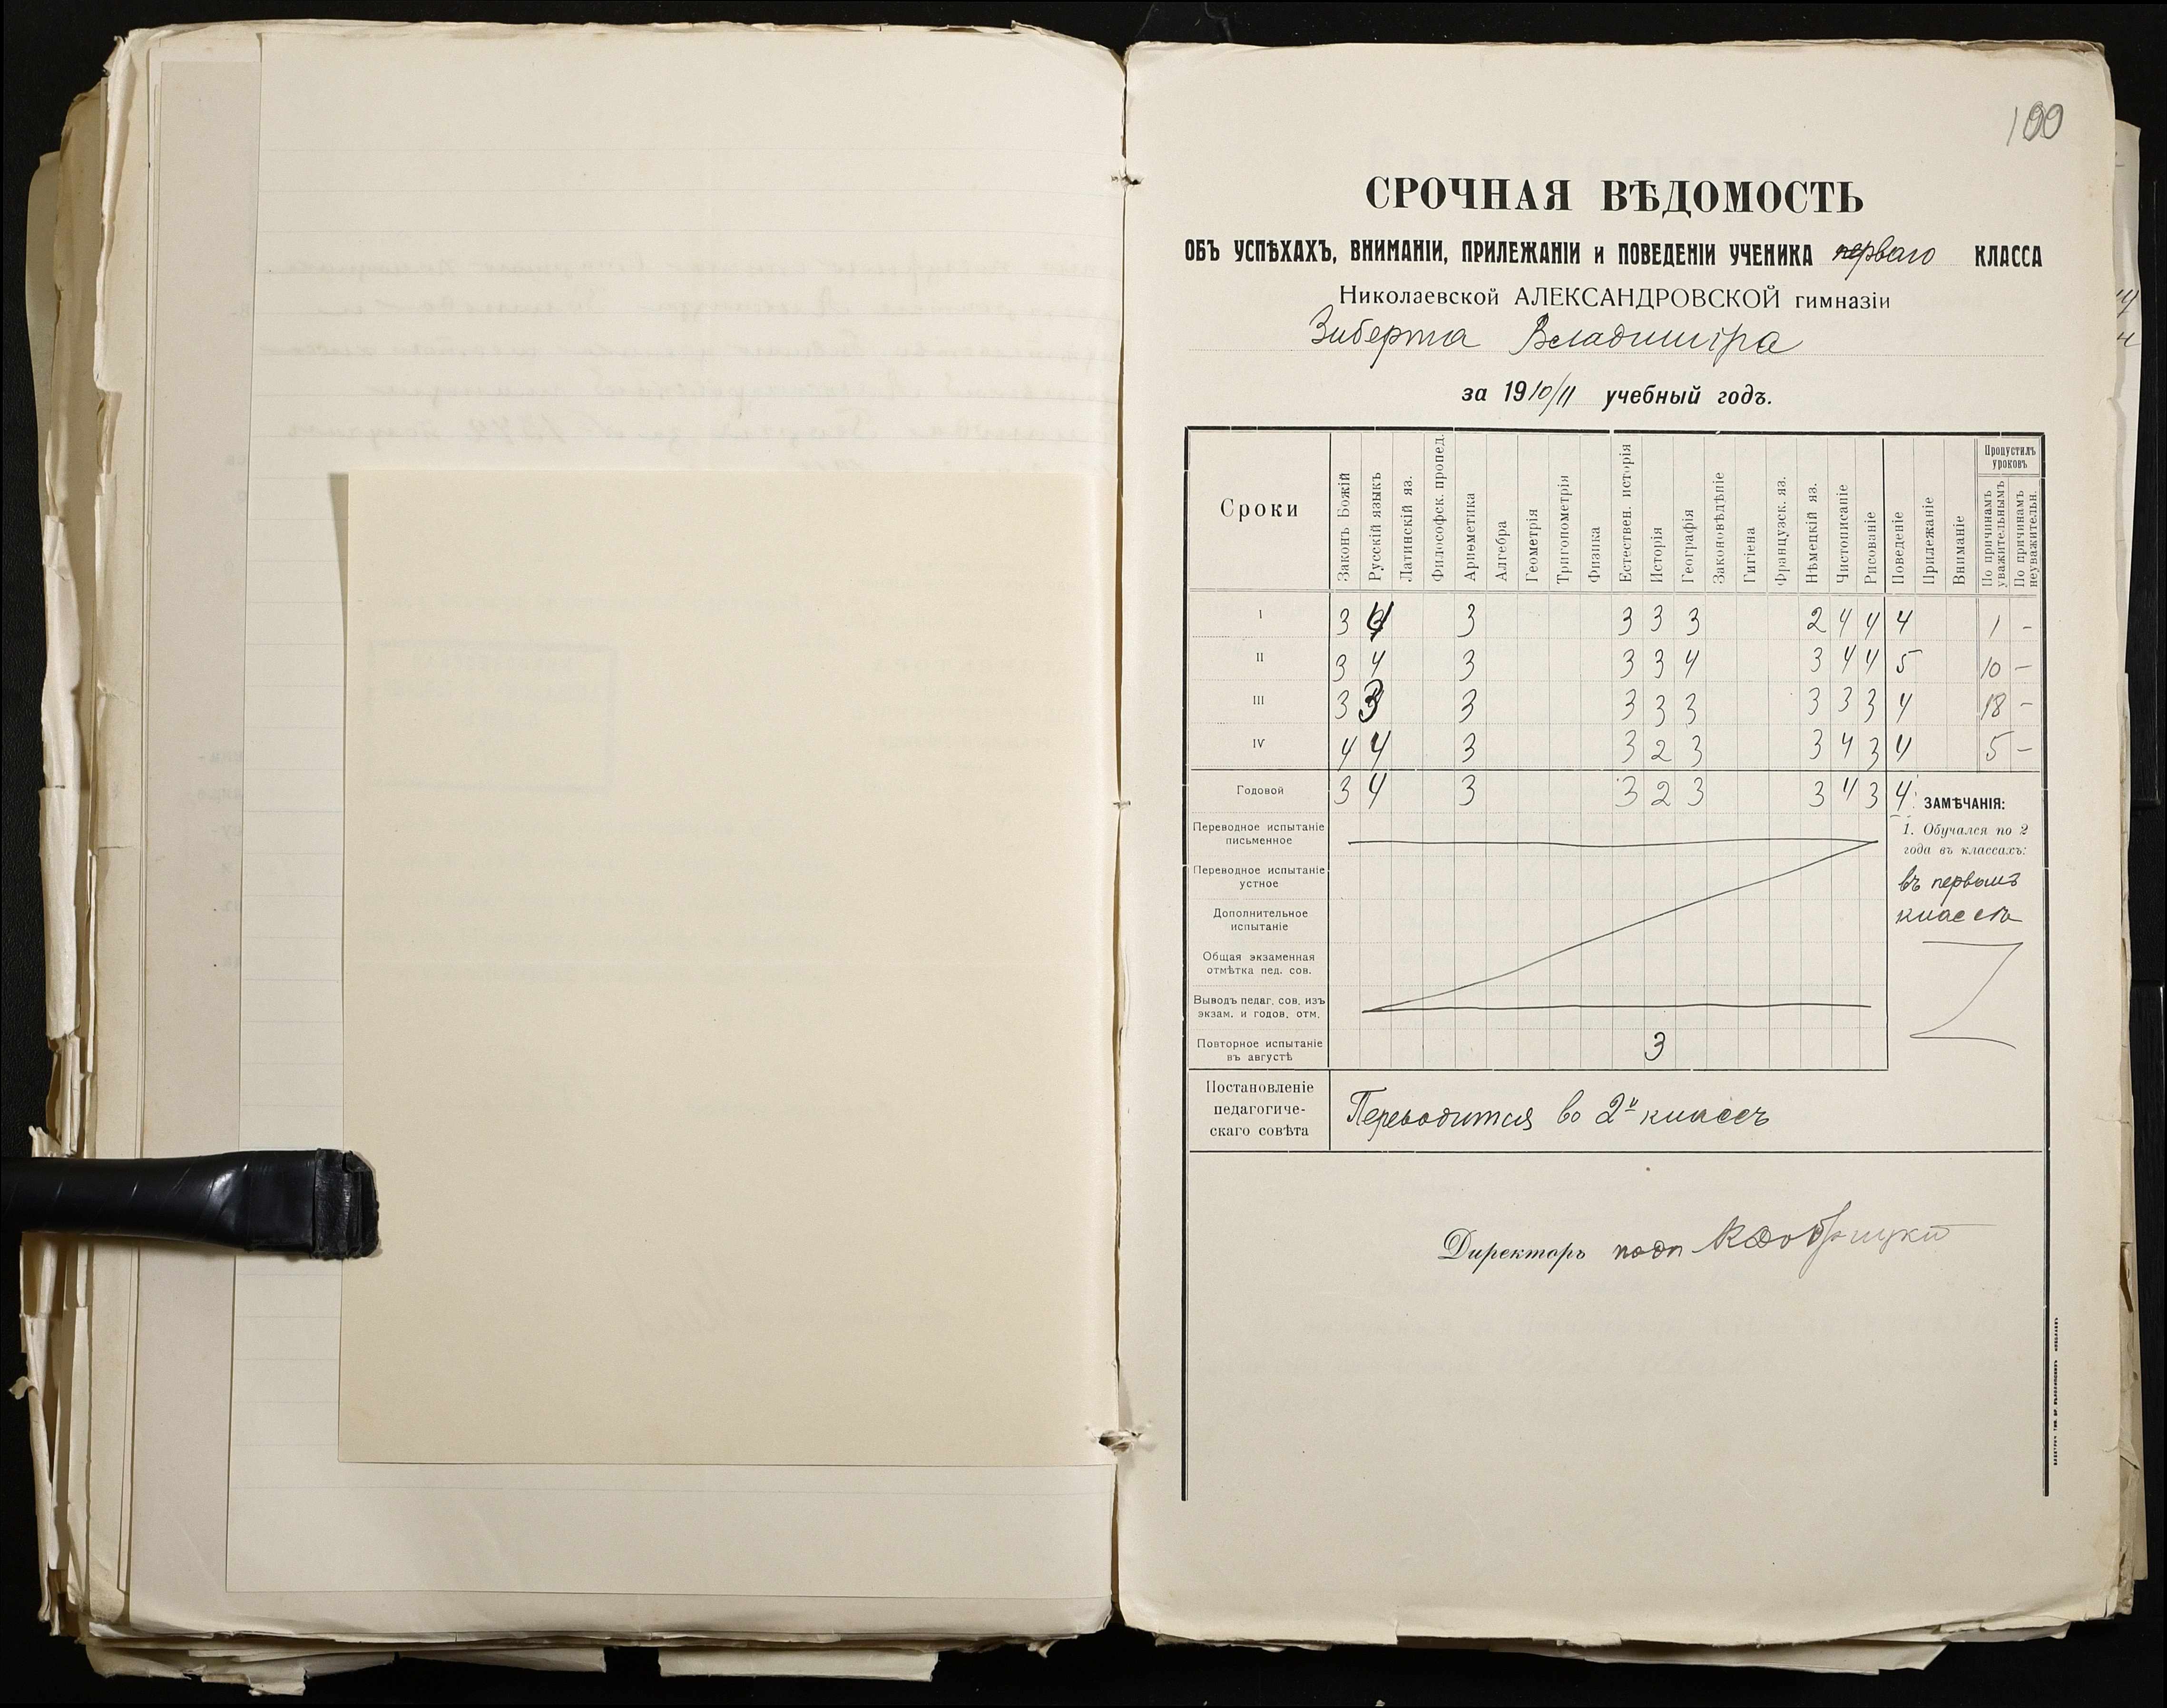 100
СРОЧНАЯ ВѢДОМОСТЬ
ОБЪ УСПѢХАХЪ, ВНИМАНІИ, ПРИЛЕЖАНІИ и ПОВЕДЕНІИ УЧЕНИКА перваго КЛАССА
Николаевской АЛЕКСАНДРОВСКОЙ гимназіи
Зиберта Владиміра
за 1910/11 учебный годъ.
Сроки
Законъ Божій
Русскій языкъ
Латинскій яз.
Философск. пропед.
Ариѳметика
Алгебра
Геометрія
Тригонометрія
Физика
Естествен. исторія
Исторія
Географія
Законовѣдѣніе
Гигіена
Французск. яз.
Нѣмецкій яз.
Чистописаніе
Рисованіе
Поведеніе
Прилежаніе
Вниманіе
Пропустилъ уроковъ
По причинамъ уважительнымъ
По причинамъ неуважительн.
I 3 4 3 3 3 3 2 4 4 4 1 -
II 3 4 3 3 3 4 3 4 4 5 10 -
III 3 3 3 3 3 3 3 3 3 4 18 -
IV 4 4 3 3 2 3 3 4 3 4 5 -
Годовой 3 4 3 3 2 3 3 4 3 4
ЗАМѢЧАНІЯ:
1. Обучался по 2
года въ классахъ:
въ первомъ
классѣ
Переводное испытаніе
письменное
Переводное испытаніе
устное
Дополнительное
испытаніе
Общая экзаменная
отмѣтка пед. сов.
Выводъ педаг. сов. изъ
экзам. и годов. отм.
Повторное испытаніе
въ августѣ 3
Постановленіе
педагогиче-
скаго совѣта
Переводится во 2й классъ
Директоръ подп